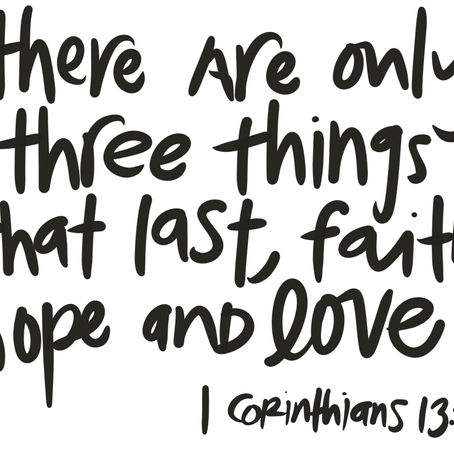 there are only
three things
that last, faith
hope and love
1 Corinthians 13: